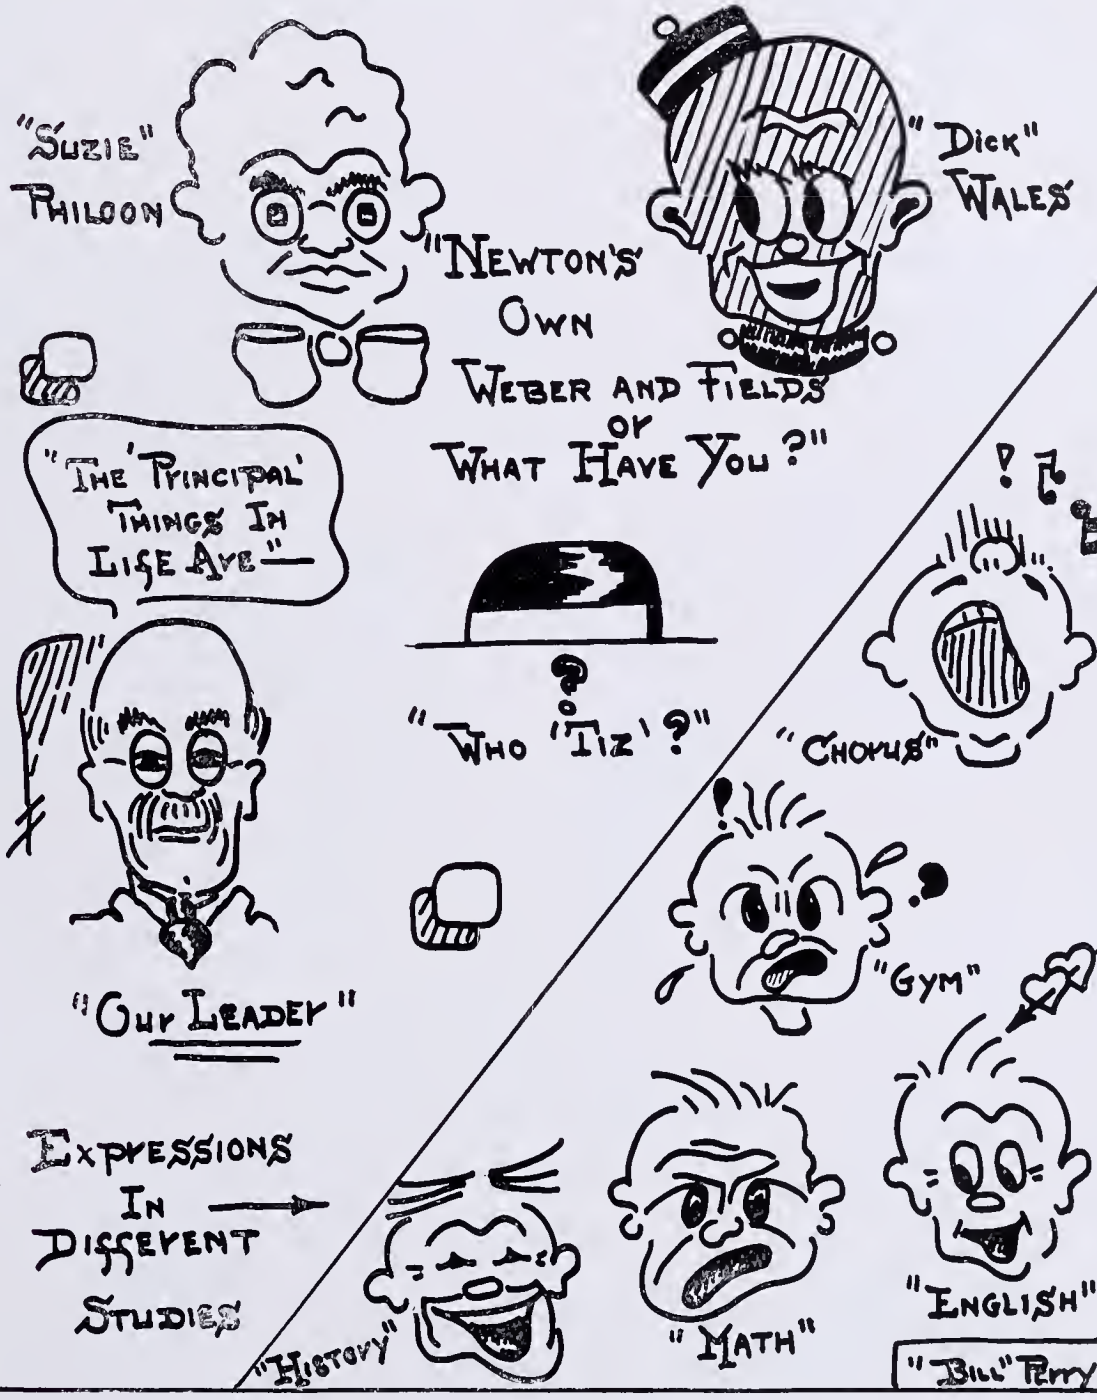 "SUZIE"
PHILOON
"DICK"
WALES
"NEWTON'S
OWN
WEBER AND FIELDS
or
WHAT HAVE YOU?"
"THE 'PRINCIPAL'
THINGS IN
LIFE ARE"—
"WHO 'TIZ'?"
"OUR LEADER"
"CHORUS"
"GYM"
EXPRESSIONS
IN
DIFFERENT
STUDIES
"HISTORY"
"MATH"
"ENGLISH"
"BILL" PERRY